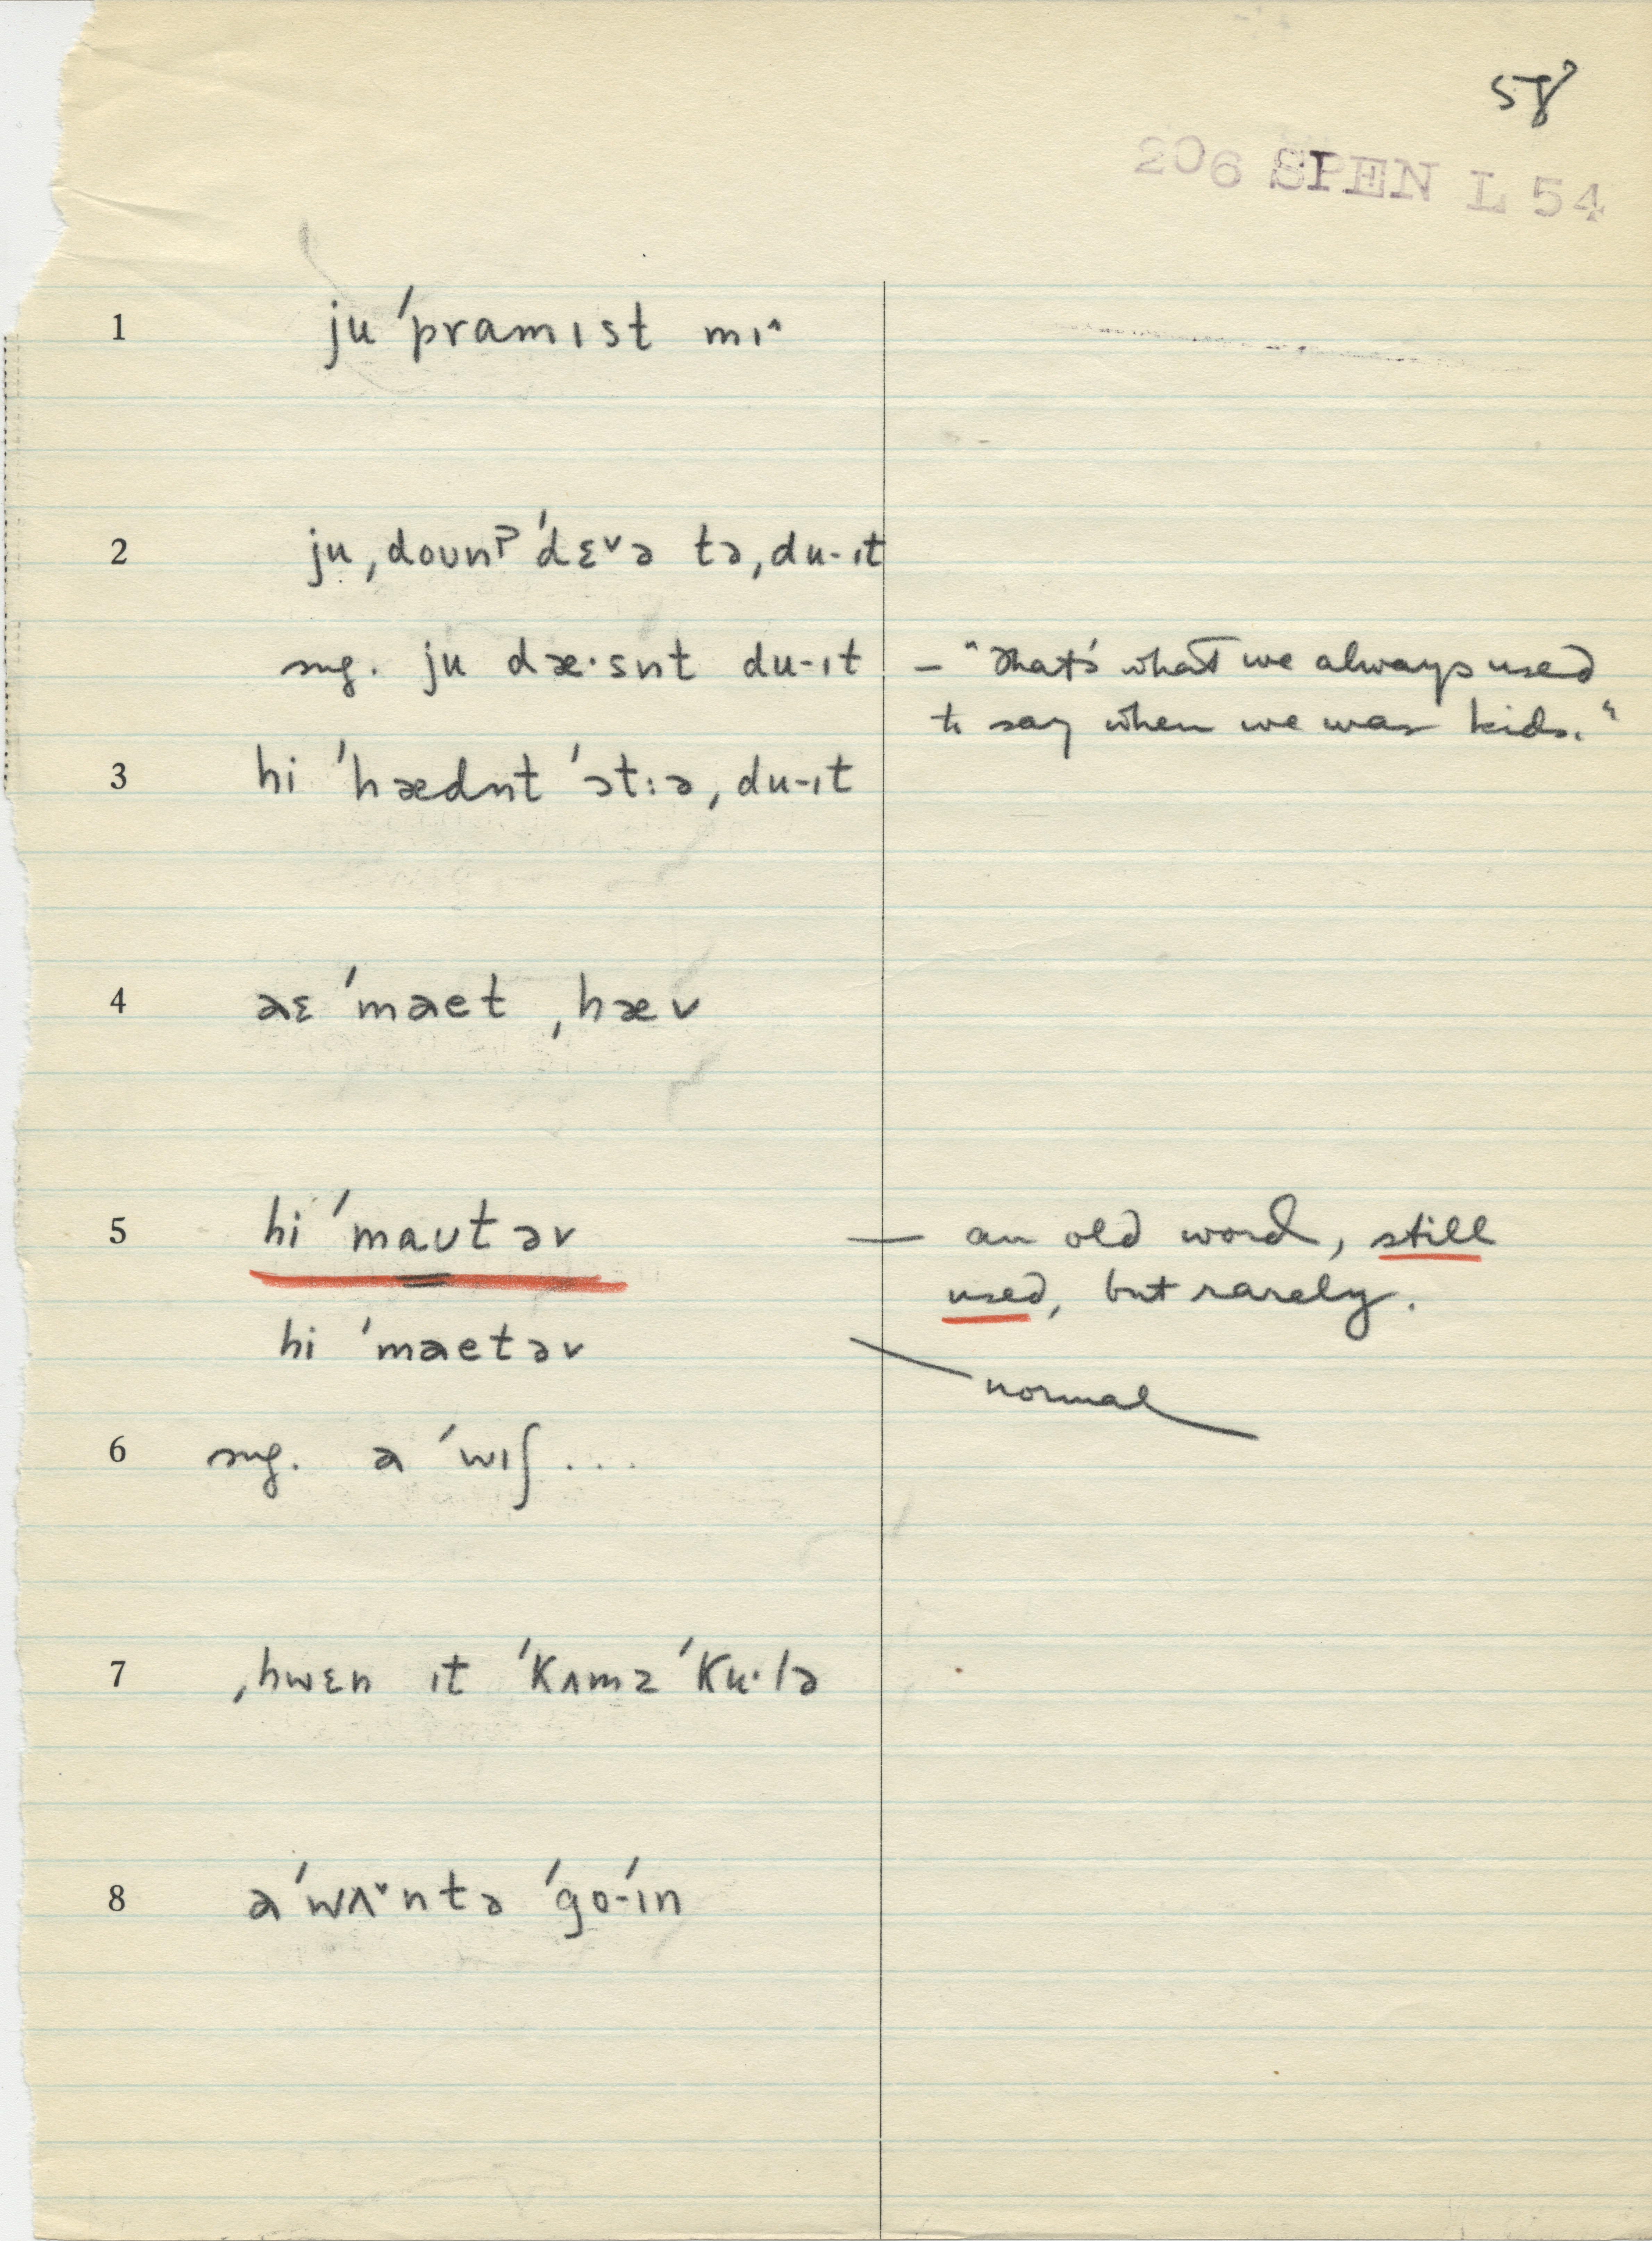 58
206 SPEN L 54
1 ju ˈpramɪst mɪ˄
2 ju ˌdoʊnˀ ˈdɛ˅ə tə ˌdu-ɪt
sug. ju dæ·snt du-ɪt – "That's what we always used
to say when we was kids."
3 hi ˈhædnt ˈɔt:ə ˌdu-ɪt
4 aɛ ˈmaet ˌhæv
5 hi ˈmaʊtəv — an old word, still
used, but rarely.
hi ˈmaetəv — normal
6 sug. a ˈwɪʃ...
7 ˌhwɛn ɪt ˈkʌmz ˈku·lə
8 a ˈwʌ˅ntə ˈgo-ˈɪn